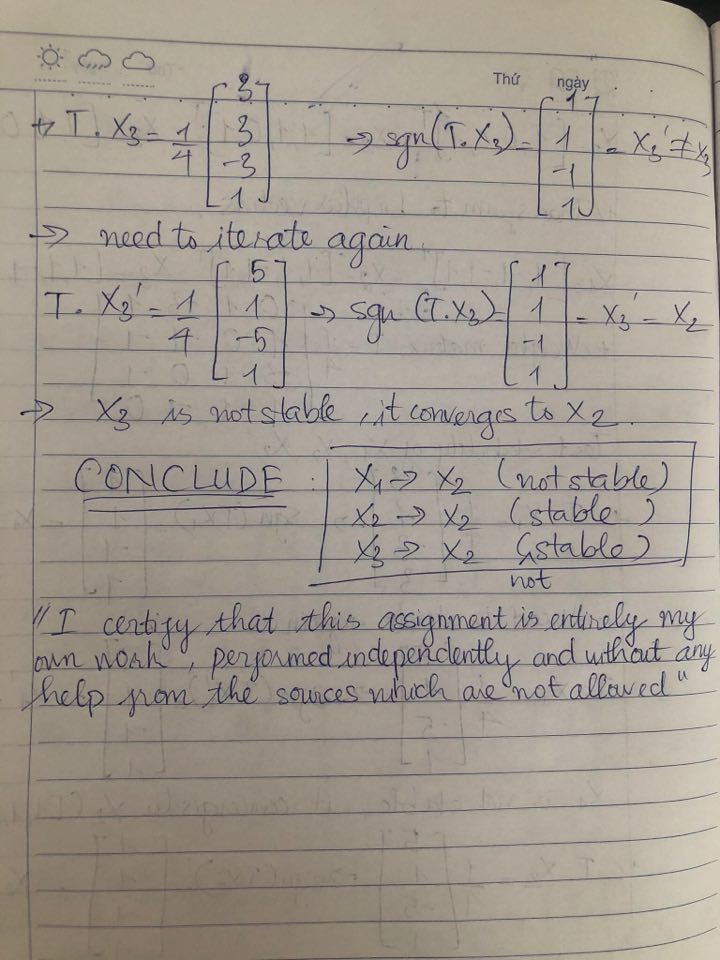 Thứ ngày
+ T. X₃ = 1/4 [3 3 -3 1] → sgn(T. X₃) = [1 1 -1 1] = X₃' ≠ X₃
→ need to iterate again.
T. X₃' = 1/4 [5 1 -5 1] → sgn (T. X₃) = [1 1 -1 1] = X₃' = X₂
→ X₃ is not stable, it converges to X₂.
CONCLUDE :
X₁ → X₂ (not stable)
X₂ → X₂ (stable)
X₃ → X₂ (stable)
not
"I certify that this assignment is entirely my
own work, performed independently and without any
help from the sources which are not allowed"